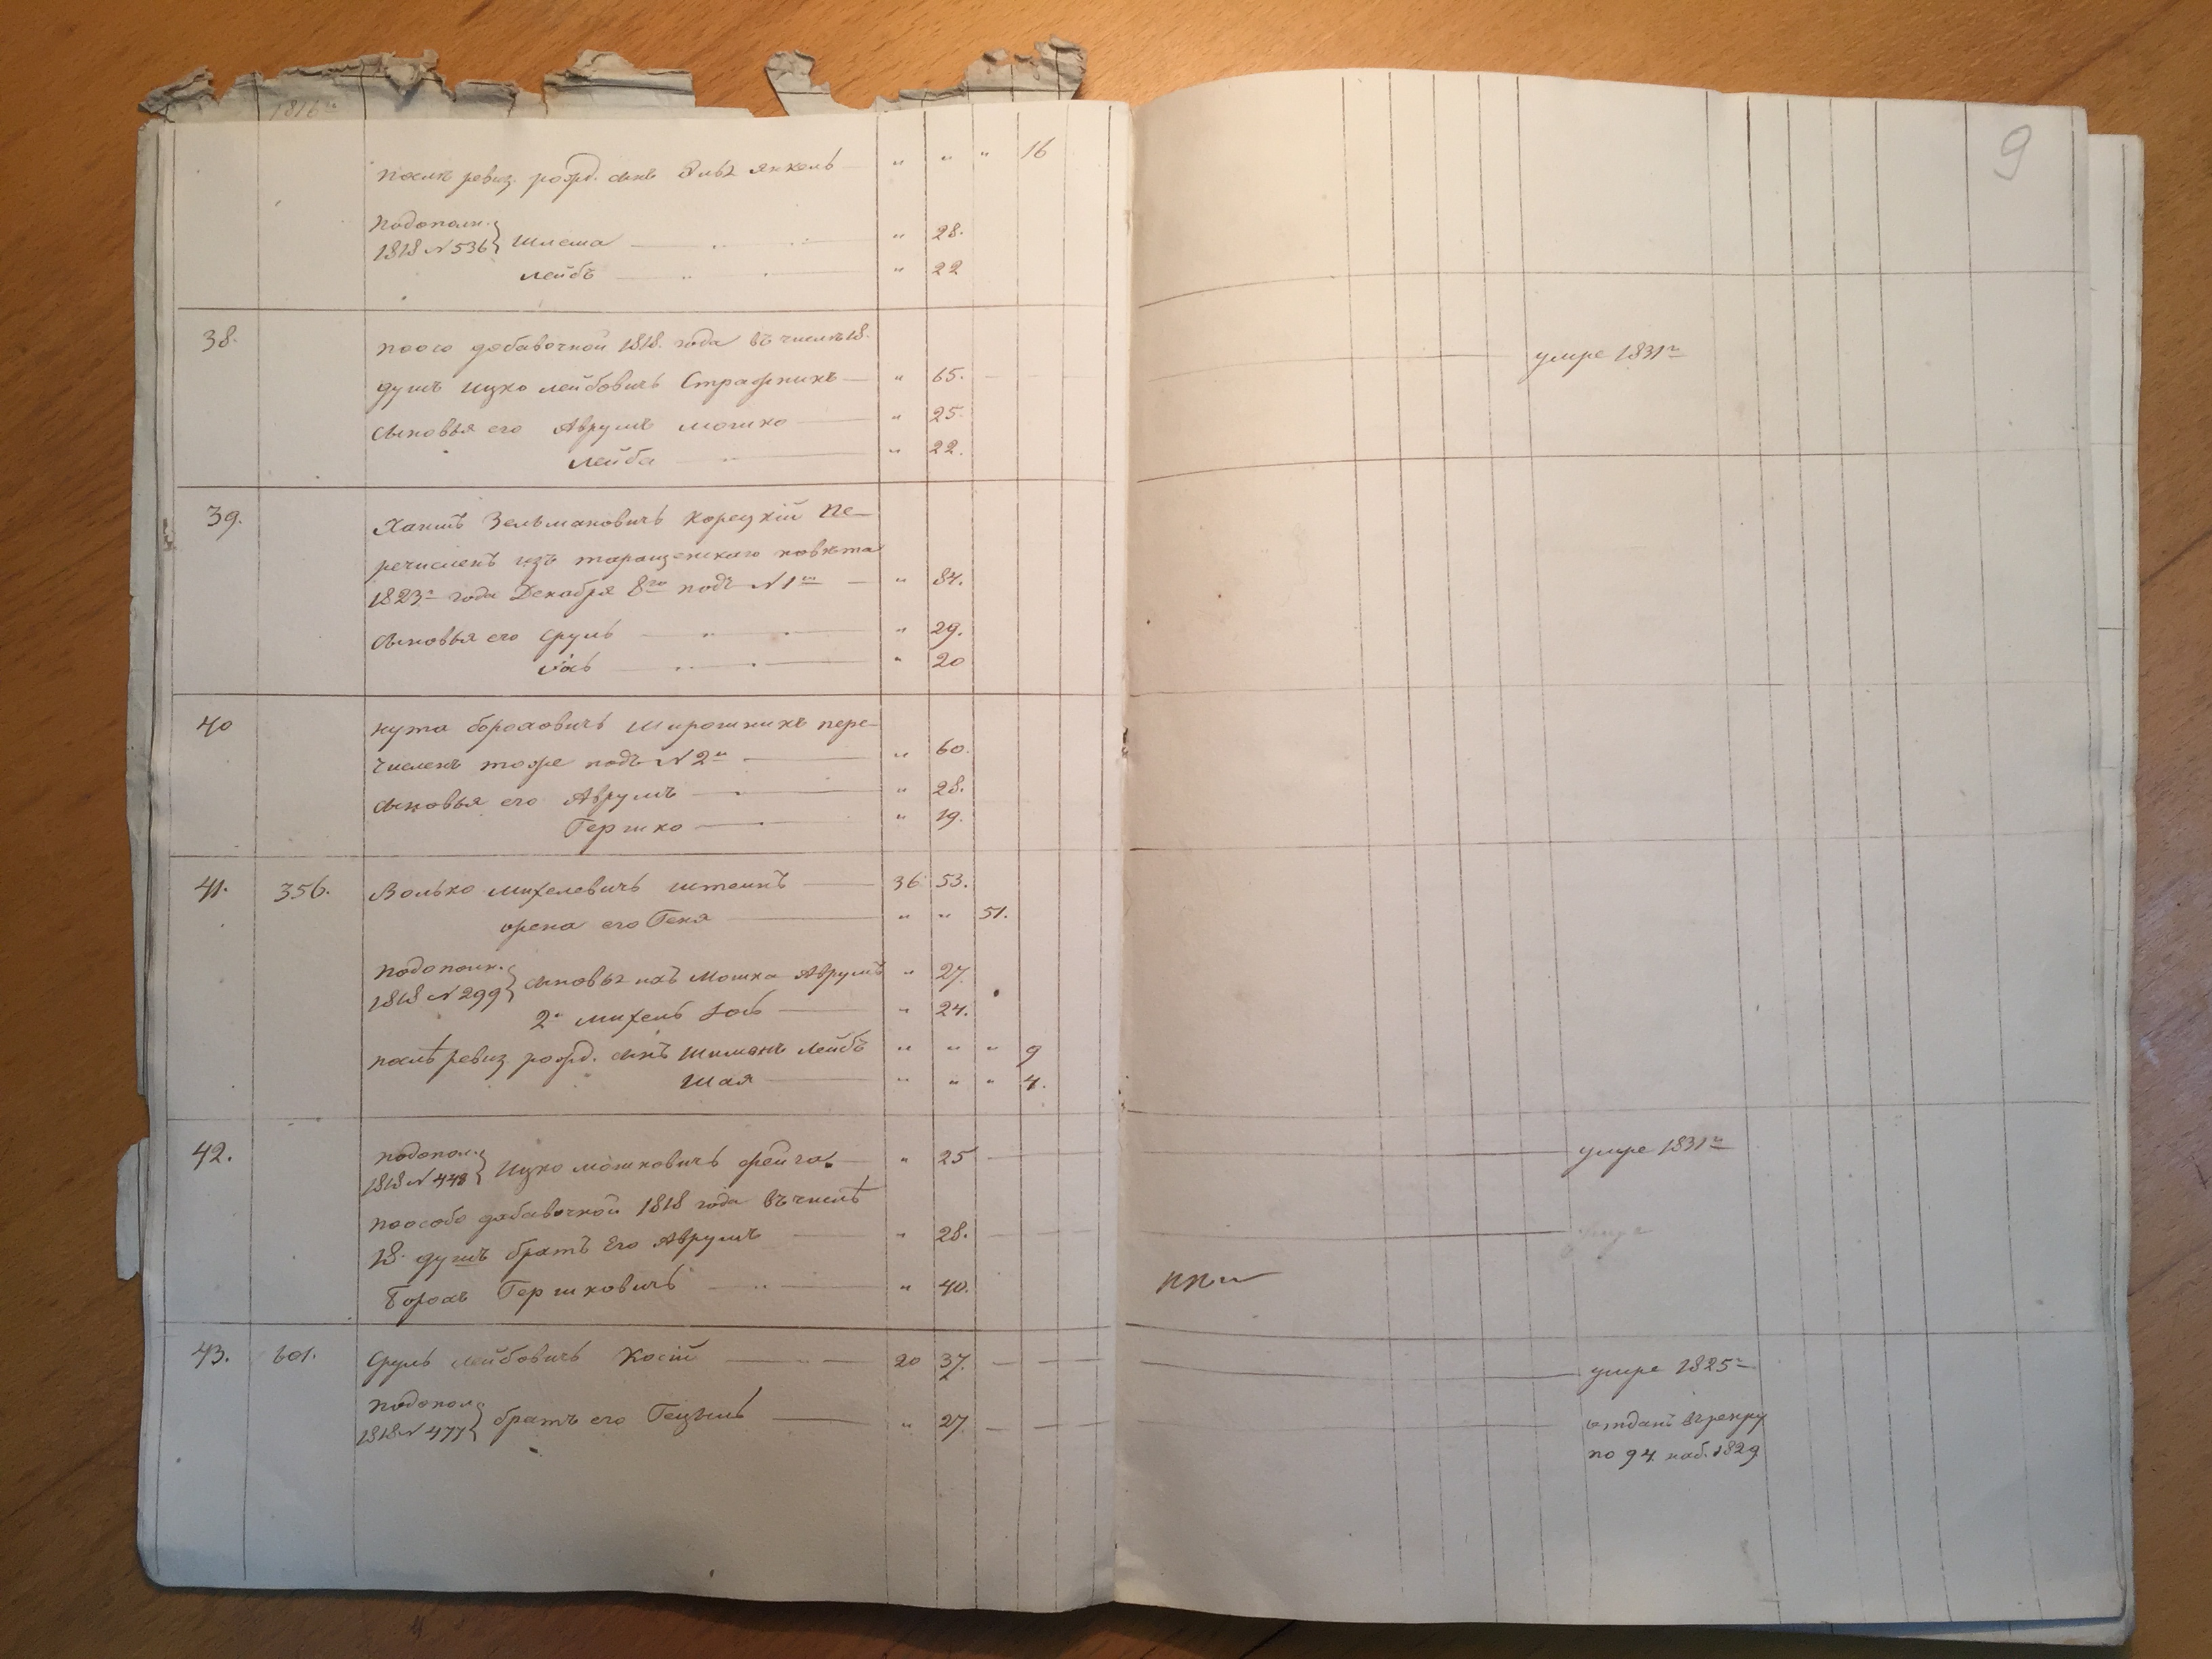 1816го
9
послѣ ревиз. рожд. сынъ Эльь Янкель — „ „ „ 16
Подополн.
1818 N 536 } Шлема — „ 28.
Лейбъ — „ 22
38. Поособо добавочной 1818. года въ числѣ 18.
душъ Ицко Лейбовичъ Стражникъ — „ 65. — умре 1831го
Сыновья его Аврумъ Мошко — „ 25.
Лейба — „ 22.
39. Хаимъ Зельмановичъ Корецкій Пе-
речисленъ изъ таращенскаго повѣта
1823го года Декабря 8го подъ N 1м — „ 84.
Сыновья его Сруль — „ 29.
Іось — „ 20
40 Нута Бороховичъ Широшникъ пере-
численъ тоже подъ N 2м — „ 60.
Сыновья его Аврумъ — „ 28.
Гершко — „ 19.
41. 356. Волько Михелевичъ Штеинъ — 36. 53.
жена его Геня — „ „ 51.
Подополн.
1818 N 299 } Сыновья ихъ Мошка Аврумъ „ 27.
2й Михель Іось — „ 24.
послѣ ревиз. рожд. сынъ Шиманъ Лейбъ „ „ „ 9
Шая — „ „ „ 4.
42. подопол.
1818 N 448 } Ицко Мошковичъ — „ 25 — умре 1831го
Поособо добавочной 1818 года въ числѣ
18. душъ братъ Его Аврумъ — „ 28. —
Борохъ Гершковичъ — „ 40.
43. 601. Сруль Лейбовичъ Косій — 20 37. — умре 1825го
подопол
1818 N 477 } братъ его Гецель — „ 27 — отданъ въ рекру
по 94. наб. 1829